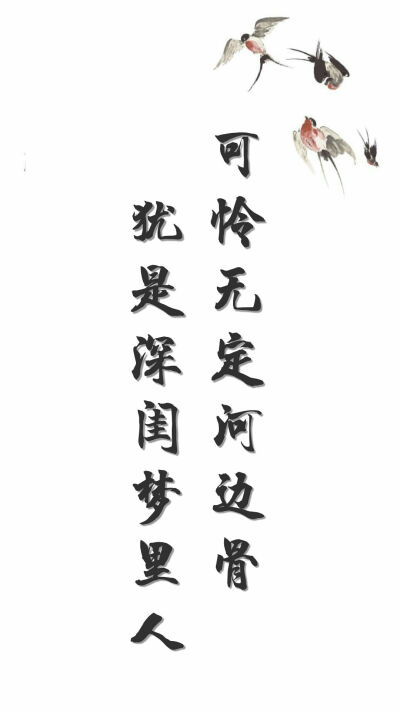 可怜无定河边骨
犹是深闺梦里人